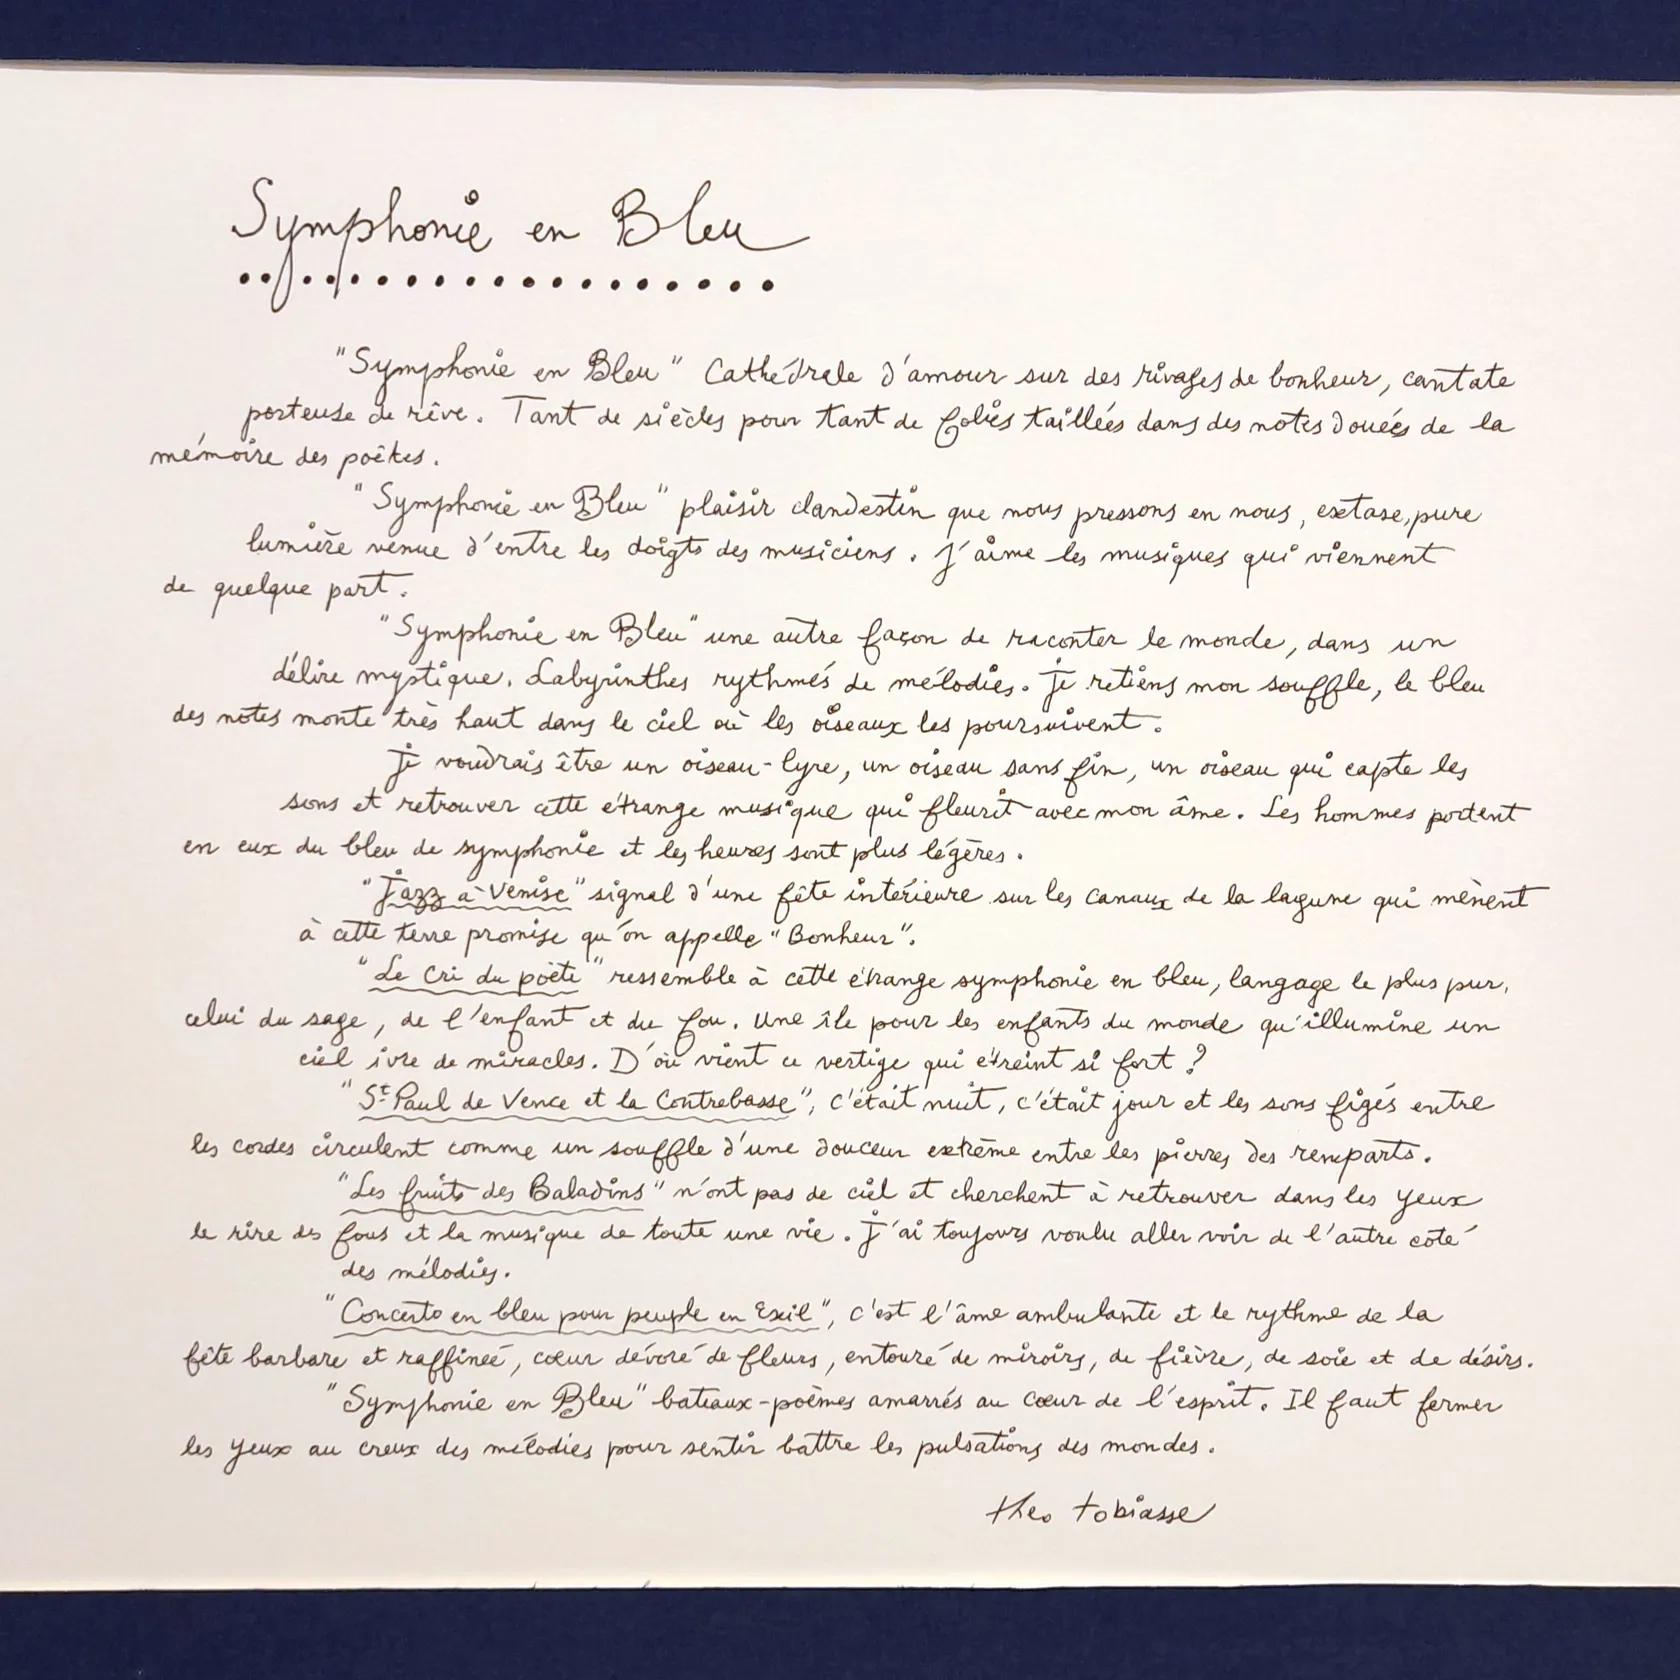 Symphonie en Bleu
"Symphonie en Bleu" Cathédrale d'amour sur des rivages de bonheur, cantate
porteuse de rêve. Tant de siècles pour tant de folies taillées dans des notes douées de la
mémoire des poètes.
"Symphonie en Bleu" plaisir clandestin que nous pressons en nous, extase, pure
lumière venue d'entre les doigts des musiciens. J'aime les musiques qui viennent
de quelque part.
"Symphonie en Bleu" une autre façon de raconter le monde, dans un
délire mystique. Labyrinthes rythmés de mélodies. Je retiens mon souffle, le bleu
des notes monte très haut dans le ciel où les oiseaux les poursuivent.
Je voudrais être un oiseau-lyre, un oiseau sans fin, un oiseau qui capte les
sons et retrouver cette étrange musique qui fleurit avec mon âme. Les hommes portent
en eux du bleu de symphonie et les heures sont plus légères.
"Jazz à Venise" signal d'une fête intérieure sur les canaux de la lagune qui mènent
à cette terre promise qu'on appelle "Bonheur".
"Le Cri du poète" ressemble à cette étrange symphonie en bleu, langage le plus pur,
celui du sage, de l'enfant et du fou. Une île pour les enfants du monde qu'illumine un
ciel ivre de miracles. D'où vient ce vertige qui étreint si fort ?
"St Paul de Vence et la Contrebasse", c'était nuit, c'était jour et les sons figés entre
les cordes circulent comme un souffle d'une douceur extrême entre les pierres des remparts.
"Les fruits des Baladins" n'ont pas de ciel et cherchent à retrouver dans les yeux
le rire des fous et la musique de toute une vie. J'ai toujours voulu aller voir de l'autre coté
des mélodies.
"Concerto en bleu pour peuple en Exil", c'est l'âme ambulante et le rythme de la
fête barbare et raffinée, cœur dévoré de fleurs, entouré de miroirs, de fièvre, de soie et de désirs.
"Symphonie en Bleu" bateaux-poèmes amarrés au cœur de l'esprit. Il faut fermer
les yeux au creux des mélodies pour sentir battre les pulsations des mondes.
theo tobiasse